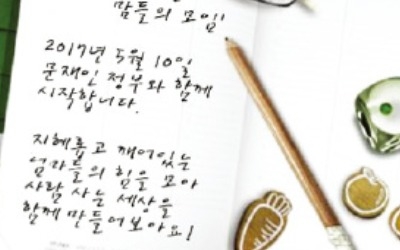 맘들의 모임!
2017년 5월 10일
문재인 정부와 함께
시작합니다.
지혜롭고 깨어있는
엄마들의 힘을 모아
사람 사는 세상을
함께 만들어보아요!